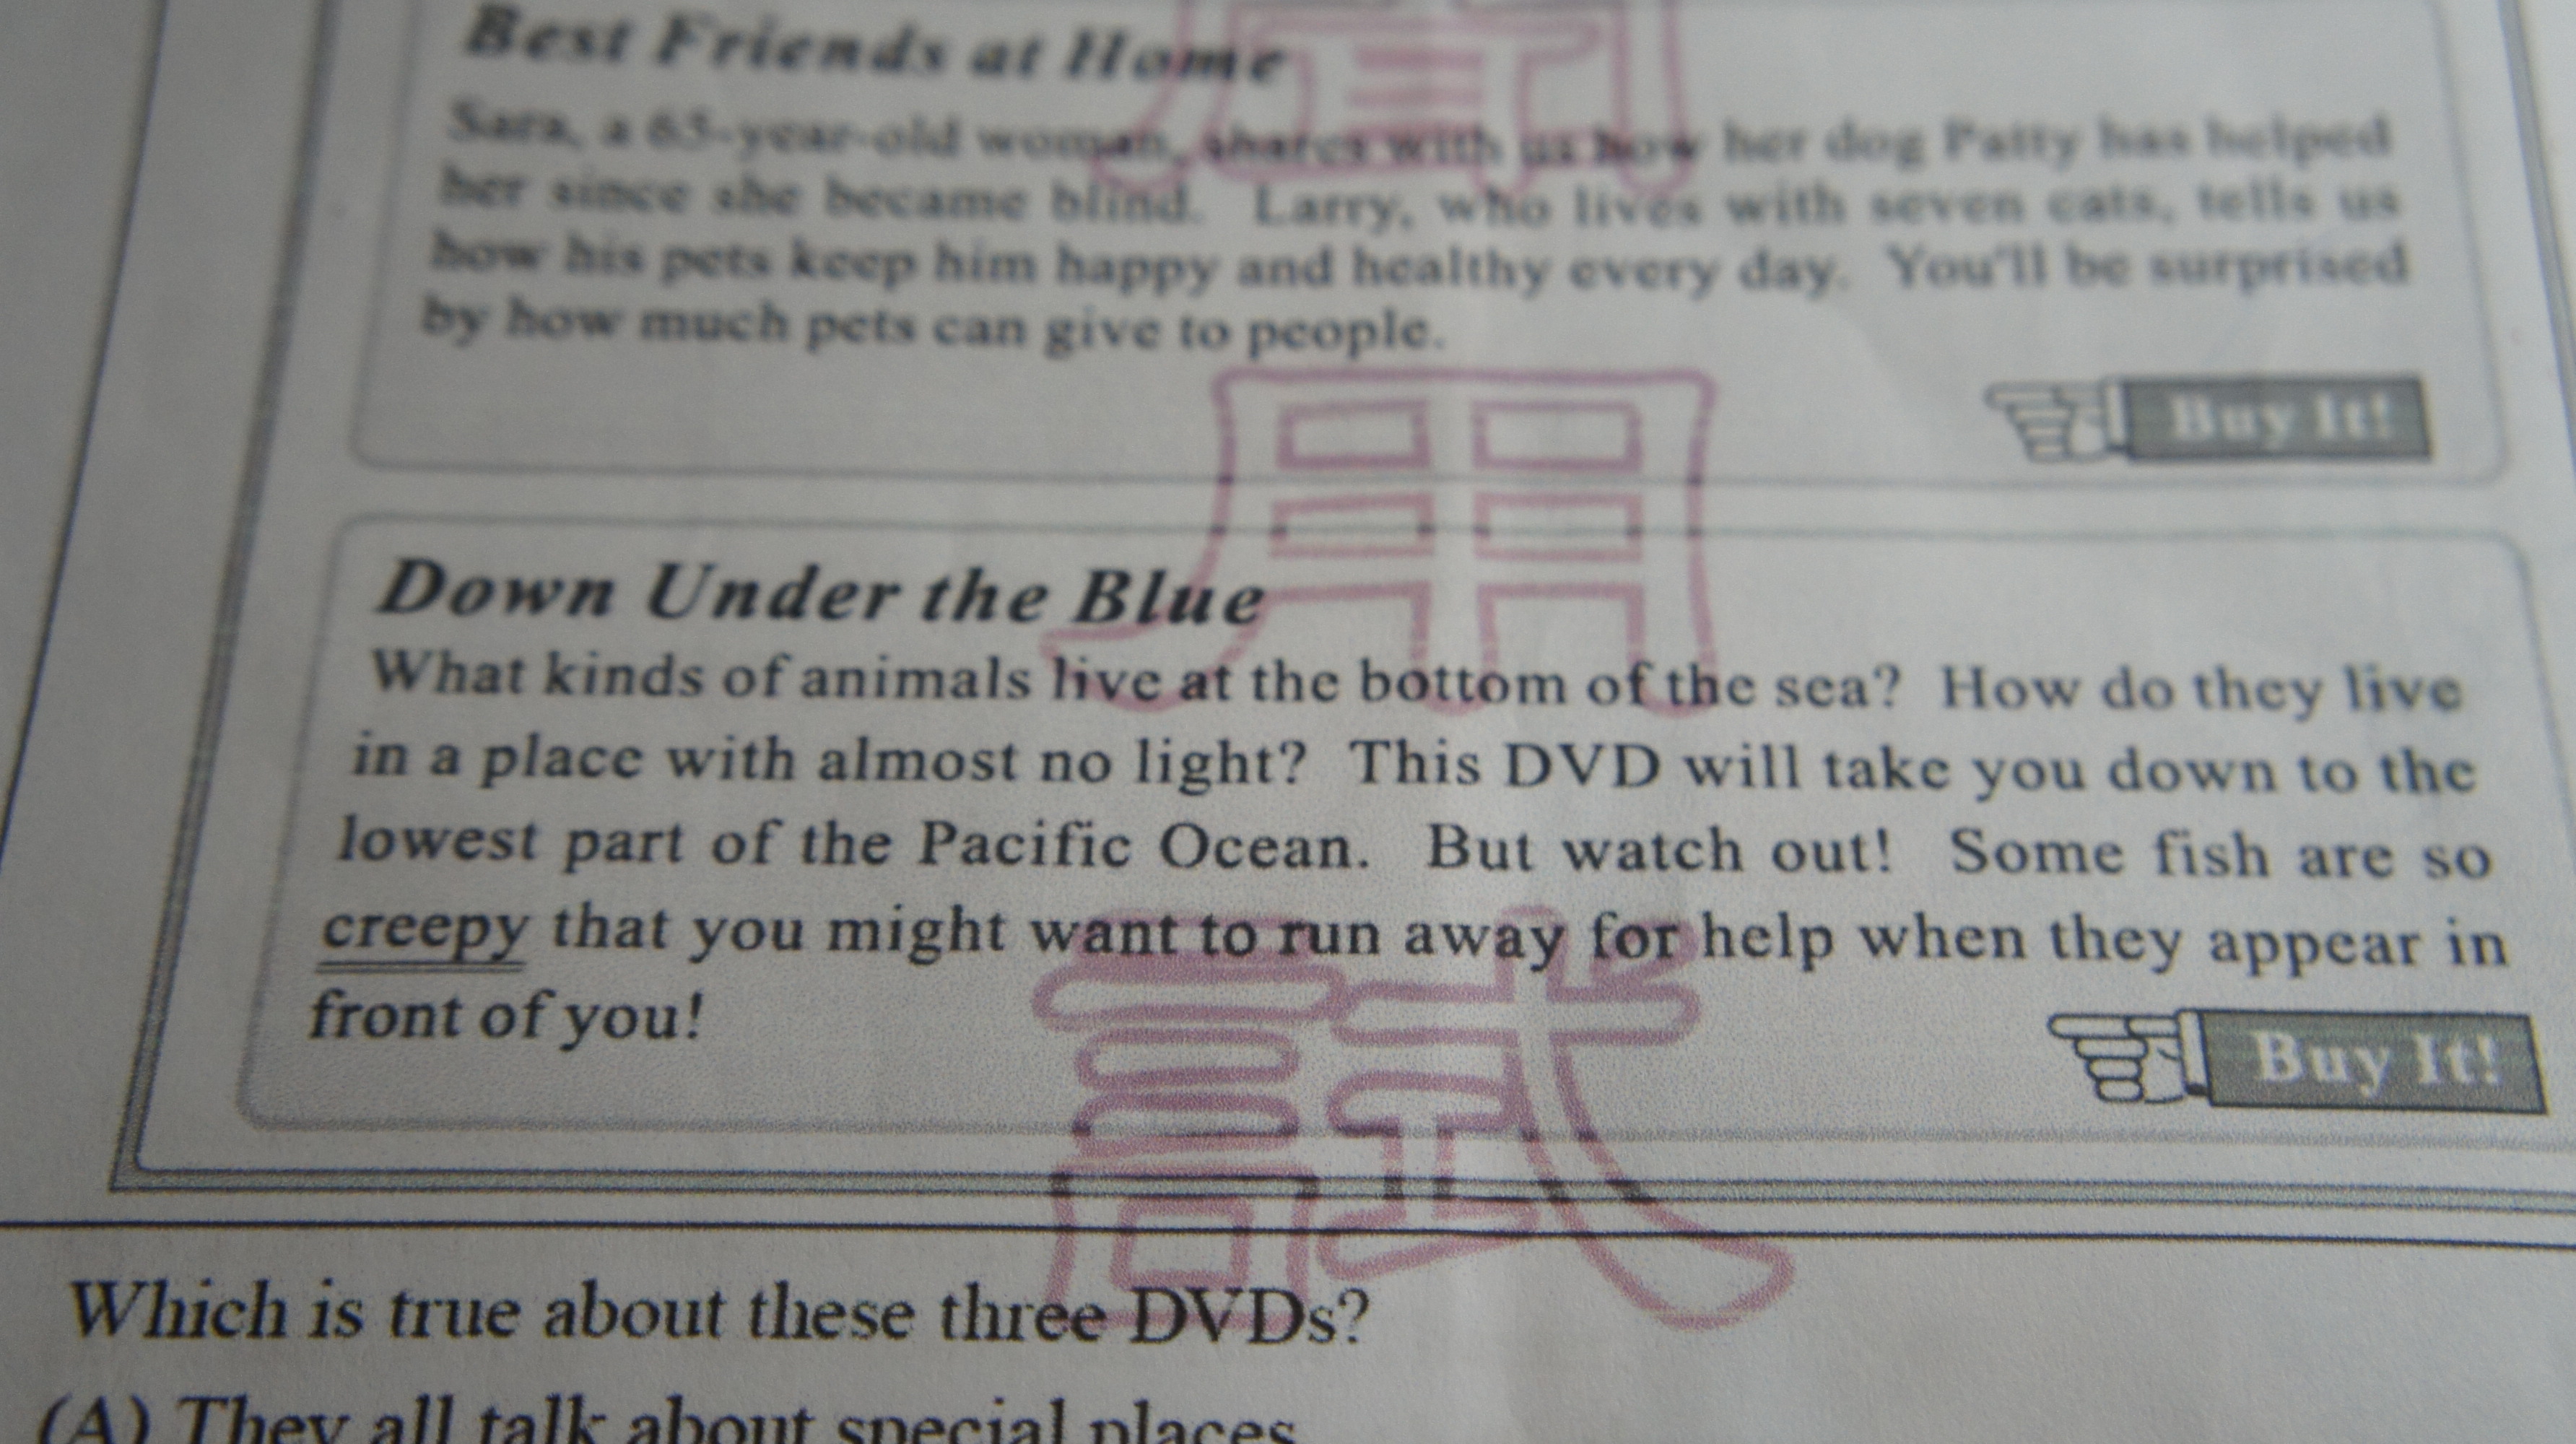 Best Friends at Home
Sara, a 65-year-old woman, shares with us how her dog Patty has helped
her since she became blind. Larry, who lives with seven cats, tells us
how his pets keep him happy and healthy every day. You'll be surprised
by how much pets can give to people.
Buy It!
Down Under the Blue
What kinds of animals live at the bottom of the sea? How do they live
in a place with almost no light? This DVD will take you down to the
lowest part of the Pacific Ocean. But watch out! Some fish are so
creepy that you might want to run away for help when they appear in
front of you!
Buy It!
用
試
Which is true about these three DVDs?
(A) They all talk about special places